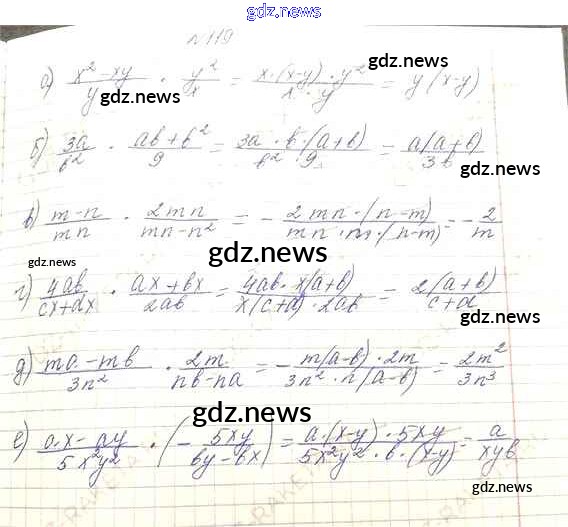 gdz.ru
№119
а) (x² - xy)/y · y²/x = (x · (x-y) · y²)/(x · y) = y(x-y)
gdz.ru
gdz.ru
б) 3a/b² · (ab + b²)/9 = (3a · b · (a+b))/(b² · 9) = a(a+b)/3b
gdz.ru
в) (m-n)/mn · 2mn/(mn-n²) = - (2mn · (n-m))/(mn · m · (n-m)) = - 2/m
gdz.ru
gdz.ru
г) 4ab/(cx+dx) · (ax+bx)/2ab = (4ab · x(a+b))/(x(c+d) · 2ab) = 2(a+b)/(c+d)
gdz.ru
д) (ma - mb)/3n² · 2m/(nb-na) = - (m(a-b) · 2m)/(3n² · n(a-b)) = 2m²/3n³
gdz.ru
gdz.ru
е) (ax - ay)/5x²y² · (- 5xy/(by-bx)) = (a · (x-y) · 5xy)/(5x²y² · b · (x-y)) = a/xyb
gdz.ru